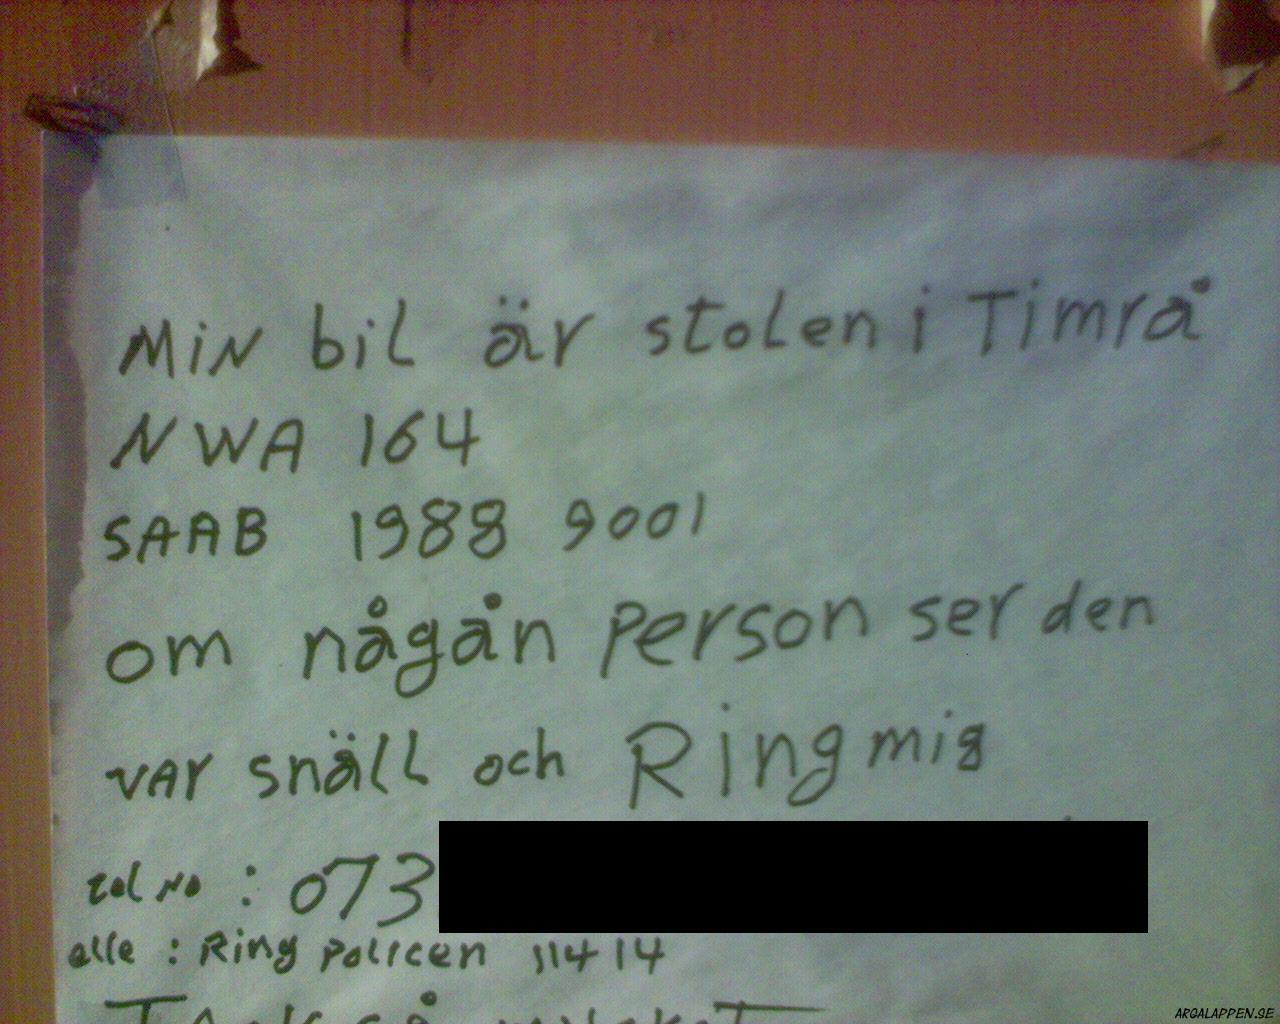 Min bil är stolen i Timrå
NWA 164
SAAB 1988 9001
om någån person ser den
var snäll och Ring mig
tel no : 073
elle : Ring policen 11414
Tack så mycket
ARGALAPPEN.SE